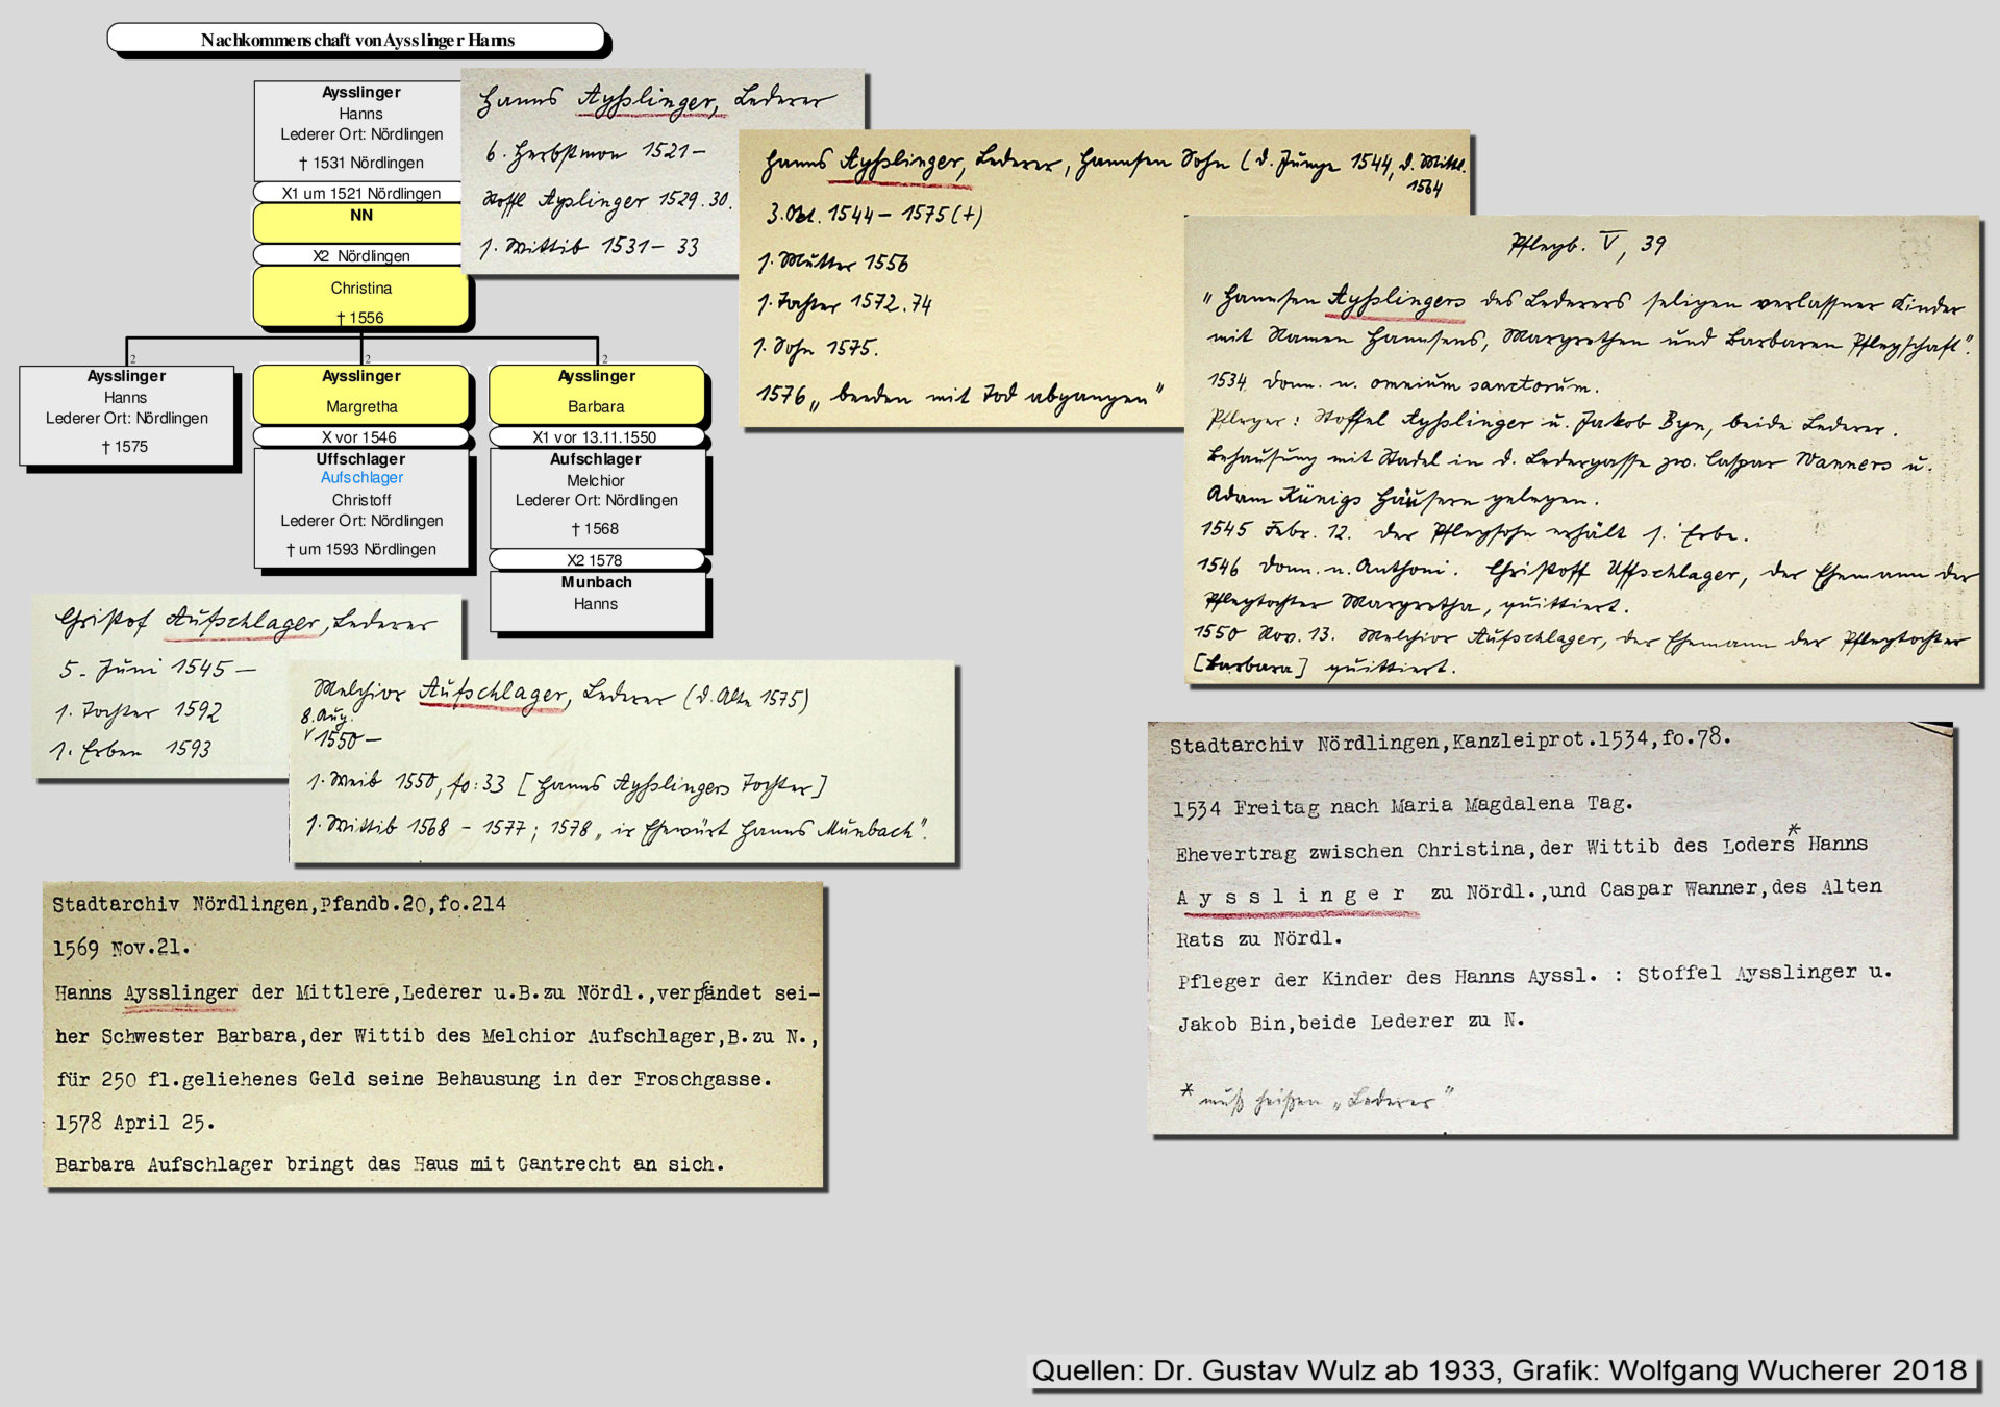 Nachkommenschaft von Aysslinger Hanns
Aysslinger
Hanns
Lederer Ort: Nördlingen
† 1531 Nördlingen
X1 um 1521 Nördlingen
NN
X2 Nördlingen
Christina
† 1556
2
2
2
Aysslinger
Hanns
Lederer Ort: Nördlingen
† 1575
Aysslinger
Margretha
X vor 1546
Uffschlager
Aufschlager
Christoff
Lederer Ort: Nördlingen
† um 1593 Nördlingen
Aysslinger
Barbara
X1 vor 13.11.1550
Aufschlager
Melchior
Lederer Ort: Nördlingen
† 1568
X2 1578
Munbach
Hanns
Hanns Aysslinger, Lederer
6. Herbstmon 1521–
Stoffl Ayslinger 1529.30.
s. Wittib 1531– 33
Hanns Aysslinger, Lederer, Hannsen Sohn (d. Junge 1544, d. Mittl.
1564
3. Okt. 1544 – 1575 (+)
s. Mutter 1556
s. Tochter 1572.74
s. Sohn 1575.
1576 „ beeden mit Tod abgangen"
Pflegb. V, 39
„ Hannsen Aysslingers des Lederers seligen verlassner Kinder
mit Namen Hannsens, Margrethen und Barbaren Pflegschaft".
1534 Donn. n. omnium sanctorum.
Pfleger: Stoffel Aysslinger u. Jakob Byn, beide Lederer.
Behausung mit Stadel in d. Ledergasse zw. Caspar Wanners u.
Adam Künigs Häusern gelegen.
1545 Febr. 12. der Pflegsohn erhält s. Erbe.
1546 Donn. n. Anthoni. Christoff Uffschlager, der Ehemann der
Pflegtochter Margretha, quittiert.
1550 Nov. 13. Melchior Aufschlager, der Ehemann der Pflegtochter
[Barbara] quittiert.
Christof Aufschlager, Lederer
5. Juni 1545 –
s. Tochter 1592
s. Erben 1593
Melchior Aufschlager, Lederer (d. Alte 1575)
8. Aug.
1550 –
s. Weib 1550, fo: 33 [Hanns Aysslingers Tochter]
s. Wittib 1568 – 1577; 1578 „ ir Ehewürt Hanns Munbach".
Stadtarchiv Nördlingen,Kanzleiprot.1534,fo.78.
1534 Freitag nach Maria Magdalena Tag.
Ehevertrag zwischen Christina,der Wittib des Loders* Hanns
A y s s l i n g e r zu Nördl.,und Caspar Wanner,des Alten
Rats zu Nördl.
Pfleger der Kinder des Hanns Ayssl. : Stoffel Aysslinger u.
Jakob Bin,beide Lederer zu N.
* muß heißen „Lederer"
Stadtarchiv Nördlingen,Pfandb.20,fo.214
1569 Nov.21.
Hanns Aysslinger der Mittlere,Lederer u.B.zu Nördl.,verpfändet sei-
ner Schwester Barbara,der Wittib des Melchior Aufschlager,B.zu N.,
für 250 fl.geliehenes Geld seine Behausung in der Froschgasse.
1578 April 25.
Barbara Aufschlager bringt das Haus mit Gantrecht an sich.
Quellen: Dr. Gustav Wulz ab 1933, Grafik: Wolfgang Wucherer 2018